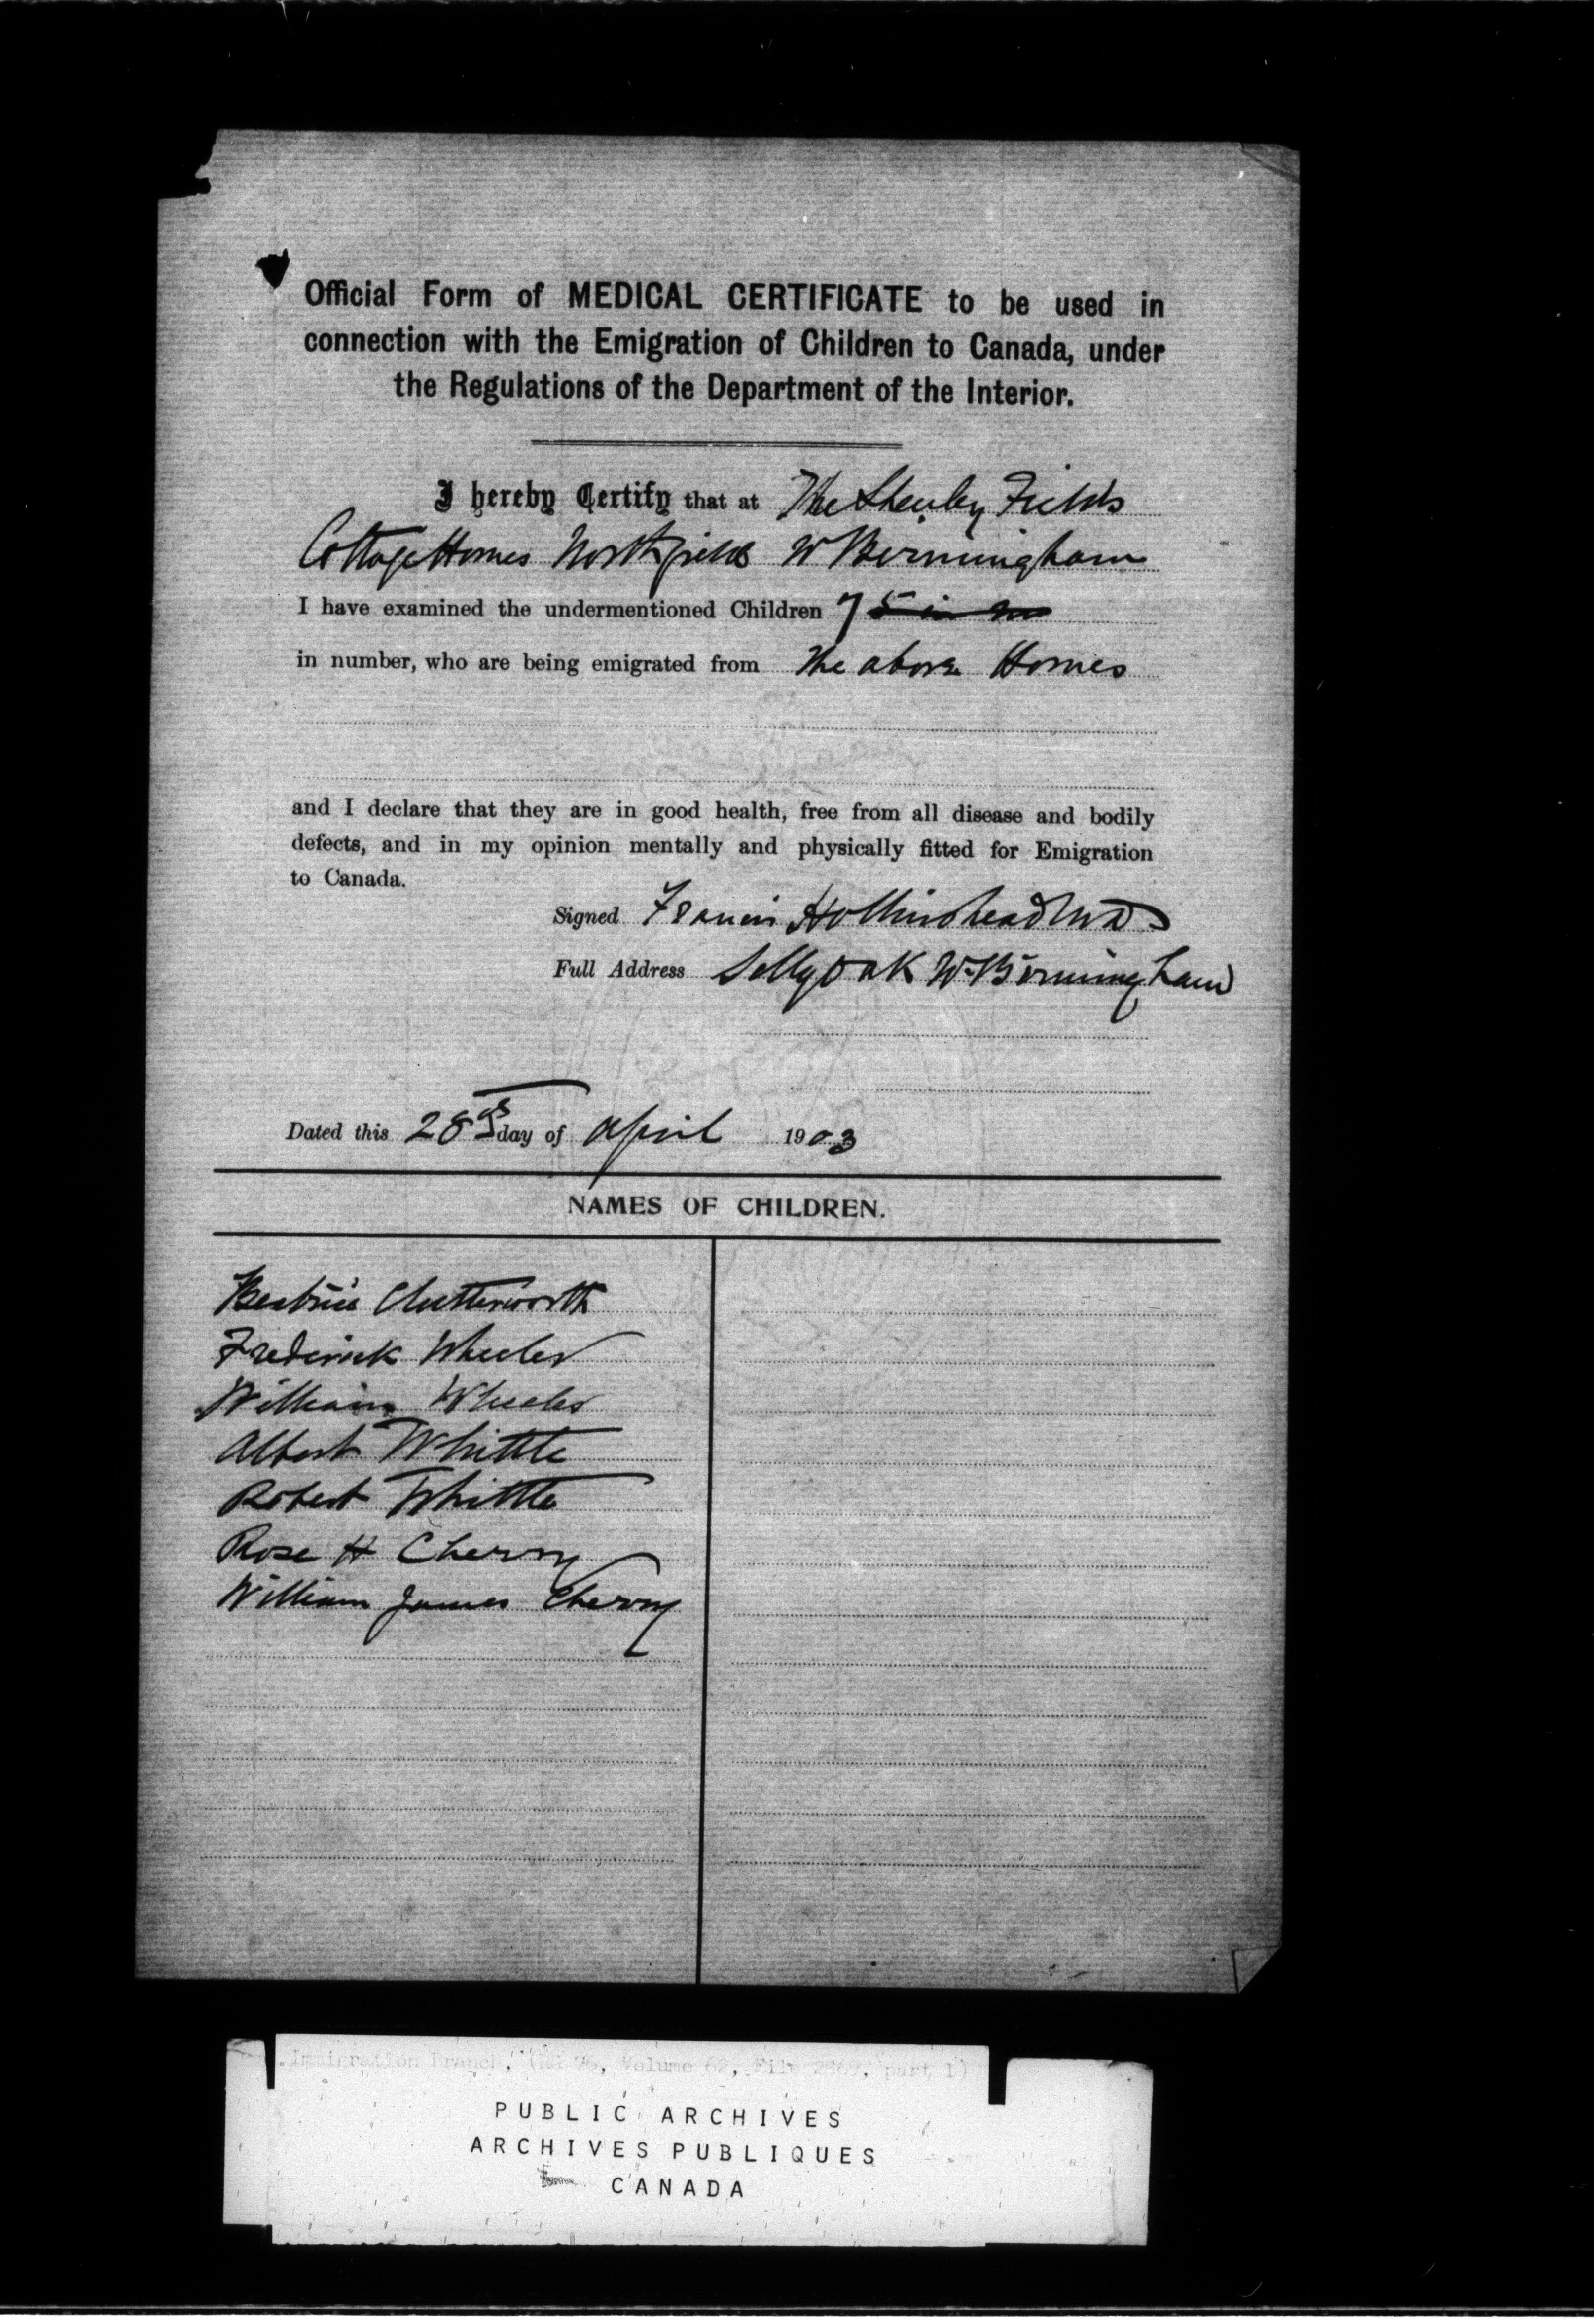 Official Form of MEDICAL CERTIFICATE to be used in
connection with the Emigration of Children to Canada, under
the Regulations of the Department of the Interior.
I hereby Certify that at The Shenley Fields
Cottage Homes Northfield Nr Birmingham
I have examined the undermentioned Children 7
in number, who are being emigrated from The above Homes
and I declare that they are in good health, free from all disease and bodily
defects, and in my opinion mentally and physically fitted for Emigration
to Canada.
Signed Francis Hollinshead
Full Address Selly Oak Nr Birmingham
Dated this 28 day of April 1903
NAMES OF CHILDREN.
Beatrice Clutterworth
Frederick Wheeler
William Wheeler
Albert Whittle
Robert Whittle
Rose H Cherry
William James Cherry
Immigration Branch, (RG 76, Volume 62, File 2869, part 1)
PUBLIC ARCHIVES
ARCHIVES PUBLIQUES
CANADA